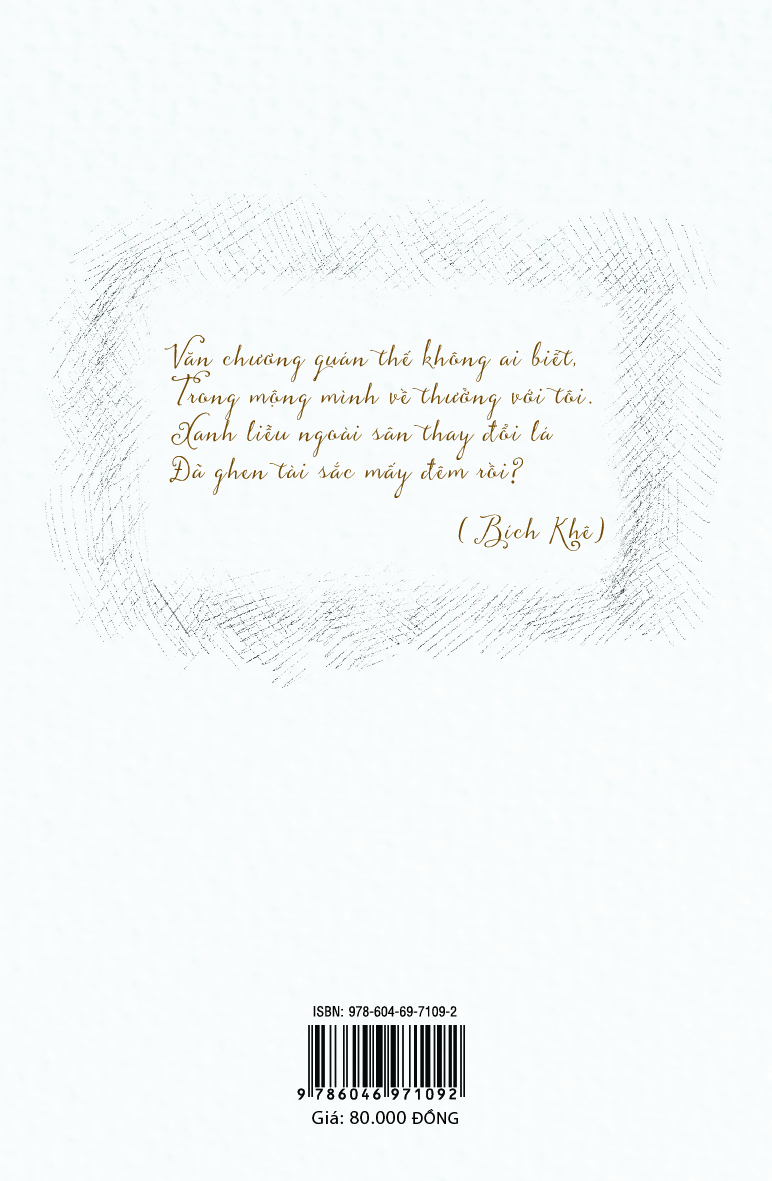 Văn chương quán thế không ai biết,
Trong mộng mình về thưởng với tôi.
Xanh liễu ngoài sân thay đổi lá
Đã ghen tài sắc mấy đêm rồi?
( Bích Khê)
ISBN: 978-604-69-7109-2
9 786046 971092
Giá: 80.000 ĐỒNG